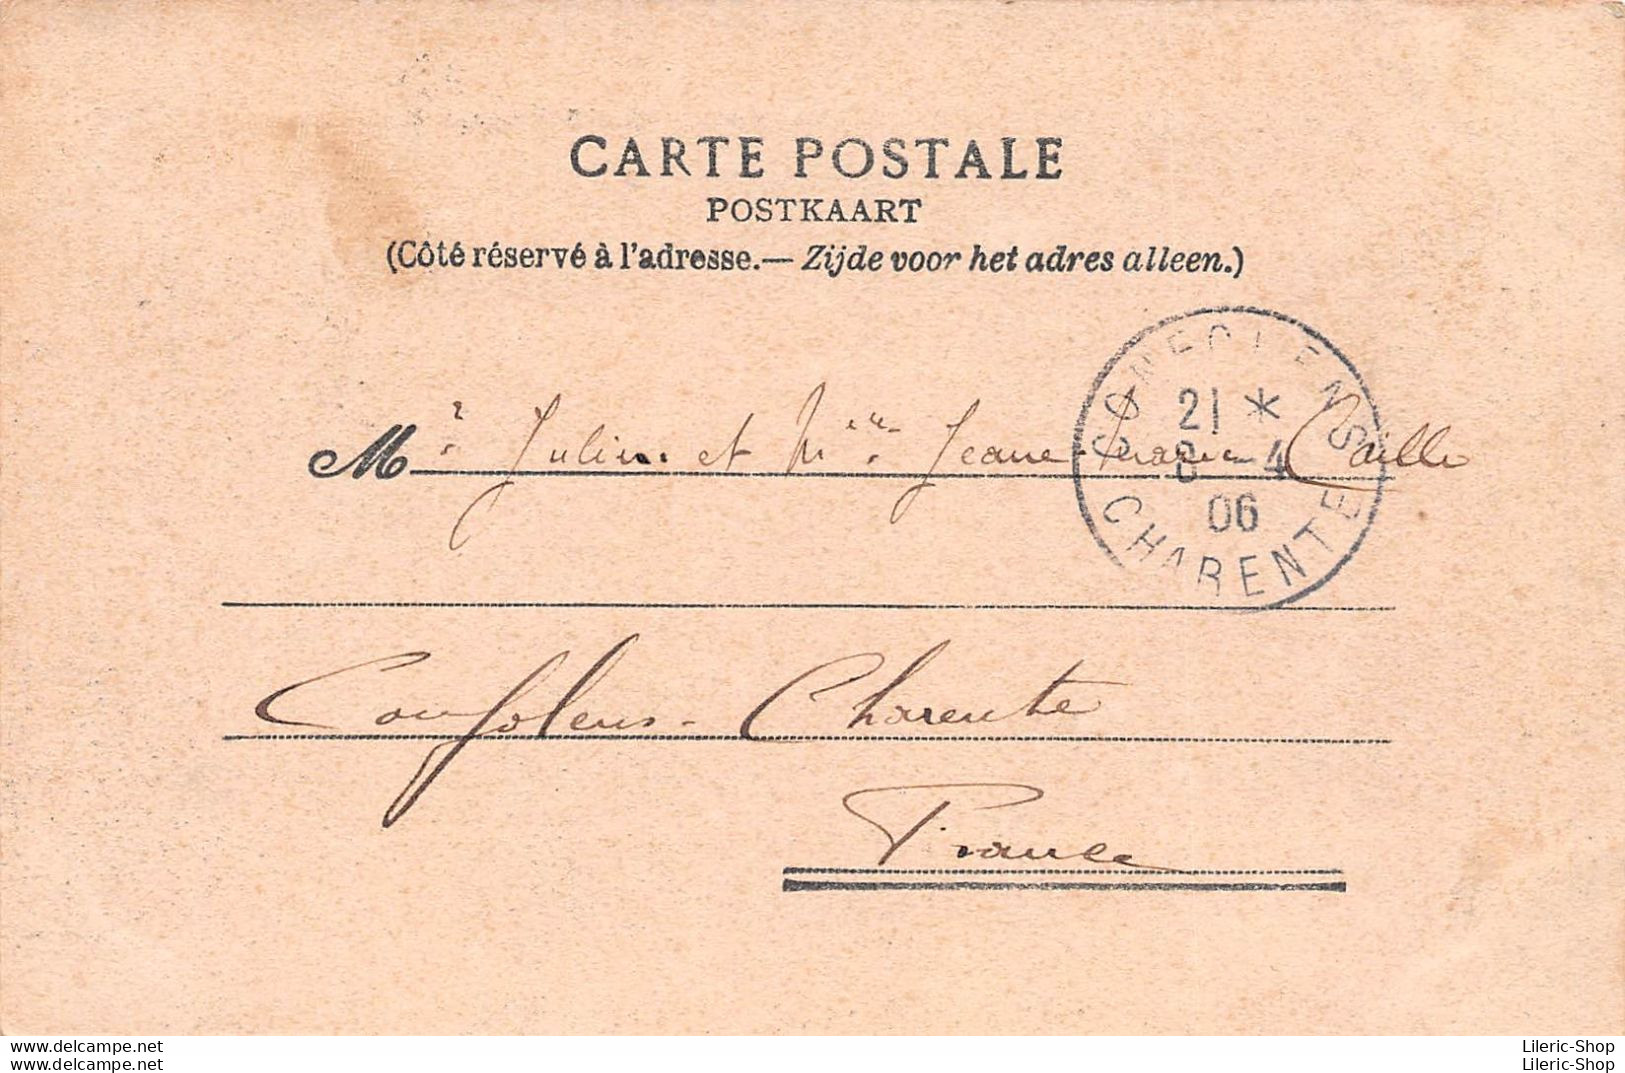 CARTE POSTALE
POSTKAART
(Côté réservé à l'adresse.— Zijde voor het adres alleen.)
CONFOLENS
21 *
8 -4
06
CHARENTE
Mr Julien et Mlle Jeanne-Marie Caillo
Confolens - Charente
France
www.delcampe.net
Lileric-Shop
www.delcampe.net
Lileric-Shop